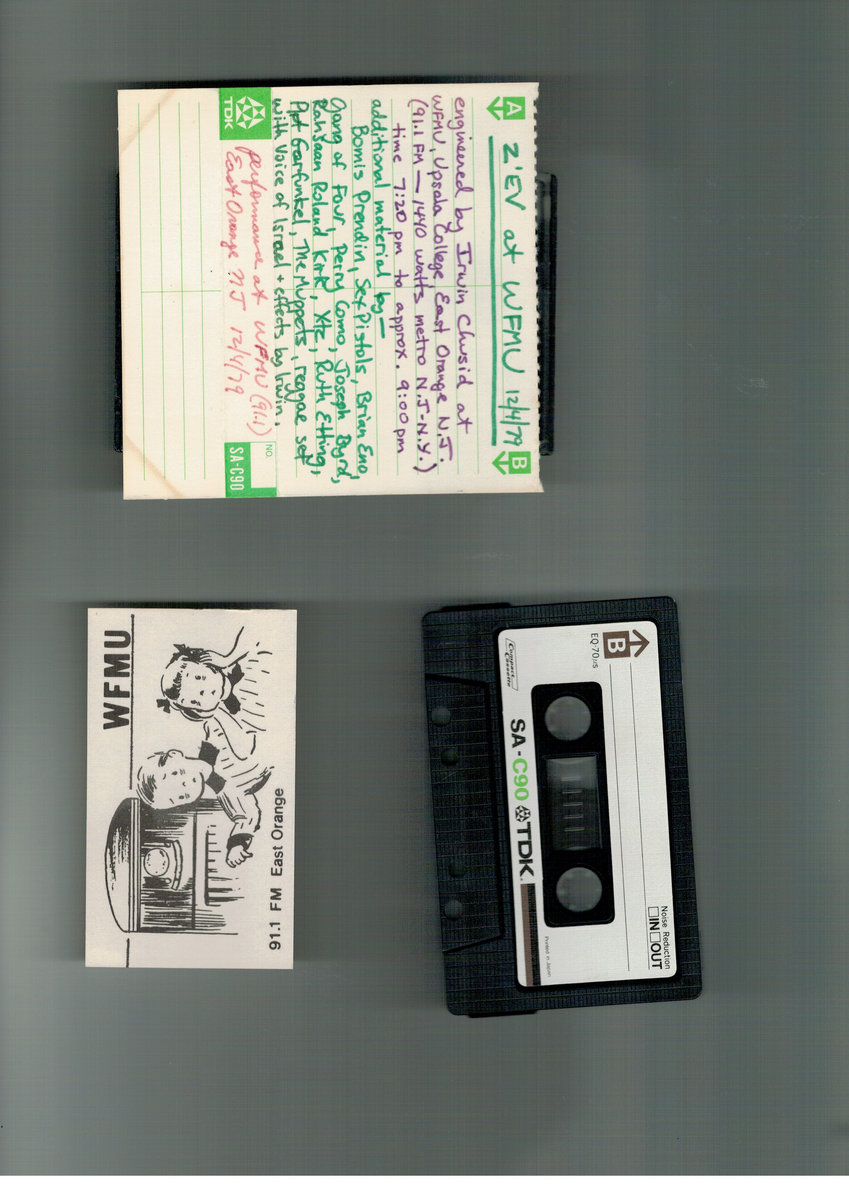 A B
Z'EV at WFMU 12/4/79
engineered by Irwin Chusid at
WFMU, Upsala College, East Orange N.J.
(91.1 FM — 1440 watts metro N.J-N.Y.)
time 7:20 pm to approx. 9:00 pm
additional material by —
Bomis Prendin, Sex Pistols, Brian Eno,
Gang of Four, Perry Como, Joseph Byrd,
Rahsaan Roland Kirk, Xtc, Ruth Etting,
Art Garfunkel, The Muppets, reggae set
with Voice of Israel + effects by Irwin,
TDK
NO.
SA-C90
performance at WFMU (91.1)
East Orange NJ 12/4/79
WFMU
91.1 FM East Orange
B
EQ·70μs
Noise Reduction
IN OUT
Compact Cassette
SA-C90 TDK.
Printed in Japan